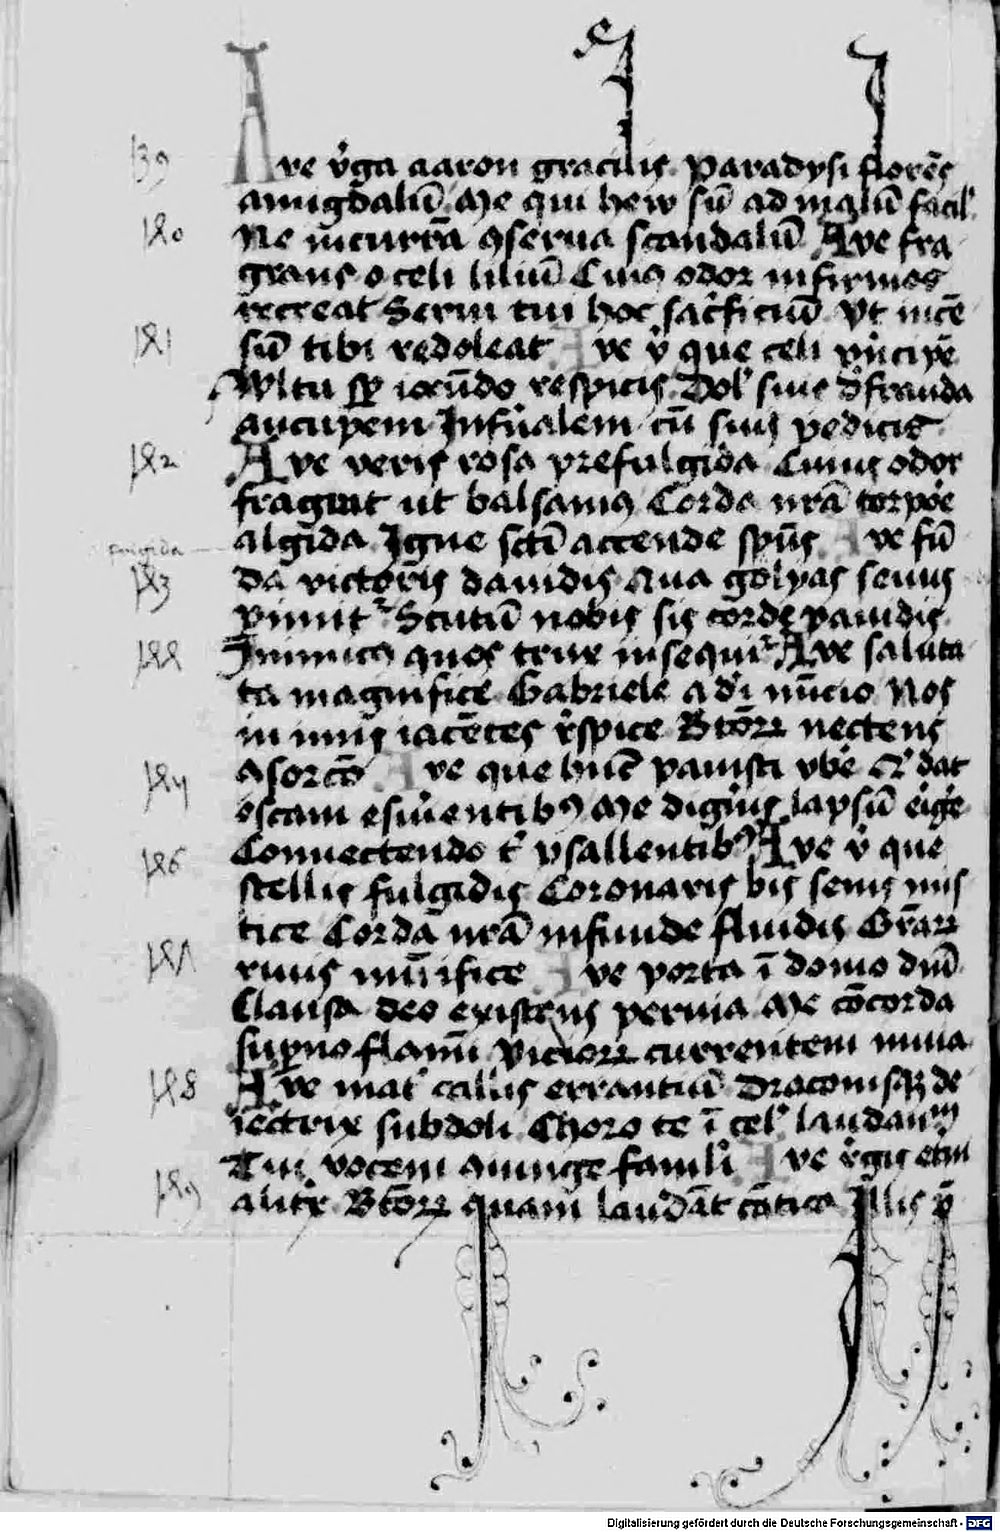 139 Ave v̉ga aaron gracilis Paradysi florēs
amigdalū Me qui hew sū ad malū facil'
140 Ne incurrā ꝯserua scandalū Ave fra
grans o celi liliū Cuiꝯ odor infirmos
recreat Serui tui hoc sac̉ficiū Vt incē
141 sū tibi redoleat Ave v̉ que celi p̉ncipē
Wltu sꝑ iocūdo respicis Dol' siue d̉frauda
aucupem Infn̉alem cū suis pedicis
142 Ave veris rosa prefulgida Cuius odor
fragrat ut balsamꝯ Corda nrā torpōe
algida Igne scti accende spūs Ave fū
frigida
143 da victoris dauidis Qua golyas seuus
pimit᷑ Scutū nobis sis corde pauidis
144 Inimicꝯ quos trux insequit᷑ Ave saluta
ta magnifice Gabriele a dei nūcio Nos
in imis iacētes r̉spice Btōꝝ nectens
145 ꝯsorcō Ave que hūc pauisti vbē qͥ dat
escam esurientibꝯ Me digneris lapsū erige
146 Connectendo t' psallentibꝯ Ave v̉ que
stellis fulgidis Coronaris bis senis mis
tice Corda nrā infunde fluidis Gr̄aꝝ
147 riuis mūifice Ave porta ī domo dnī
Clausa deo existens peruia Me cōcorda
suꝑno flamī Vicioꝝ currentem inuia
148 Ave mat' callis errantiū Draconisqꝫ de
iectrix subdoli Choro te ī cel' laudan
Tui vocem aiunge famli Ave v̉gis
149 Btōꝝ quam laudāt cātica Illis v̉
Digitalisierung gefördert durch die Deutsche Forschungsgemeinschaft - DFG